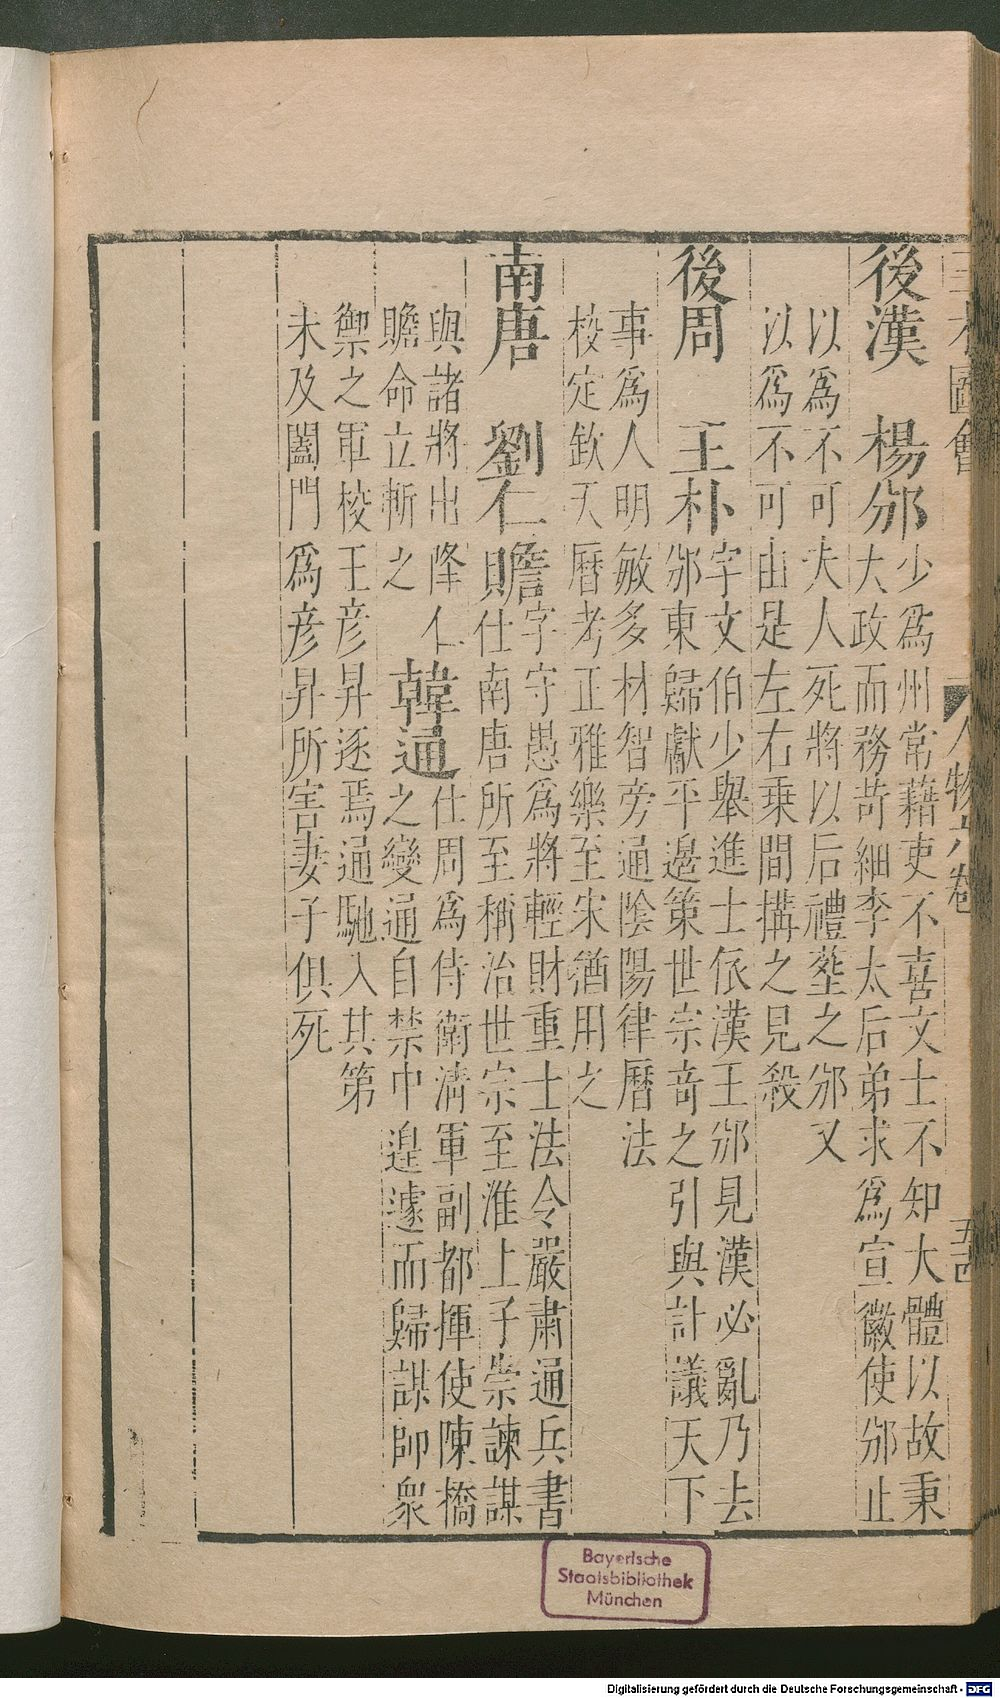 三才圖會
人物六卷
五古
後漢
楊邠
少爲州常藉吏不喜文士不知大體以故秉
大政而務苛細李太后弟求爲宣徽使邠止
以爲不可夫人死將以后禮塟之邠又
以爲不可由是左右乗間搆之見殺
後周
王朴
字文伯少舉進士依漢王邠見漢必亂乃去
邠東歸獻平邊策世宗竒之引與計議天下
事爲人明敏多材智旁通陰陽律曆法
校定欽天曆考正雅樂至宋猶用之
南唐
劉仁贍
字守愚爲將輕財重士法令嚴肅通兵書
仕南唐所至稱治世宗至淮上子崇諫謀
與諸將出降仁
贍命立斬之
韓通
仕周爲侍衛清軍副都揮使陳橋
之變通自禁中遑遽而歸謀帥衆
禦之軍校王彦昇逐焉通馳入其第
未及闔門爲彦昇所害妻子俱死
Bayerische
Staatsbibliothek
München
Digitalisierung gefördert durch die Deutsche Forschungsgemeinschaft - DFG